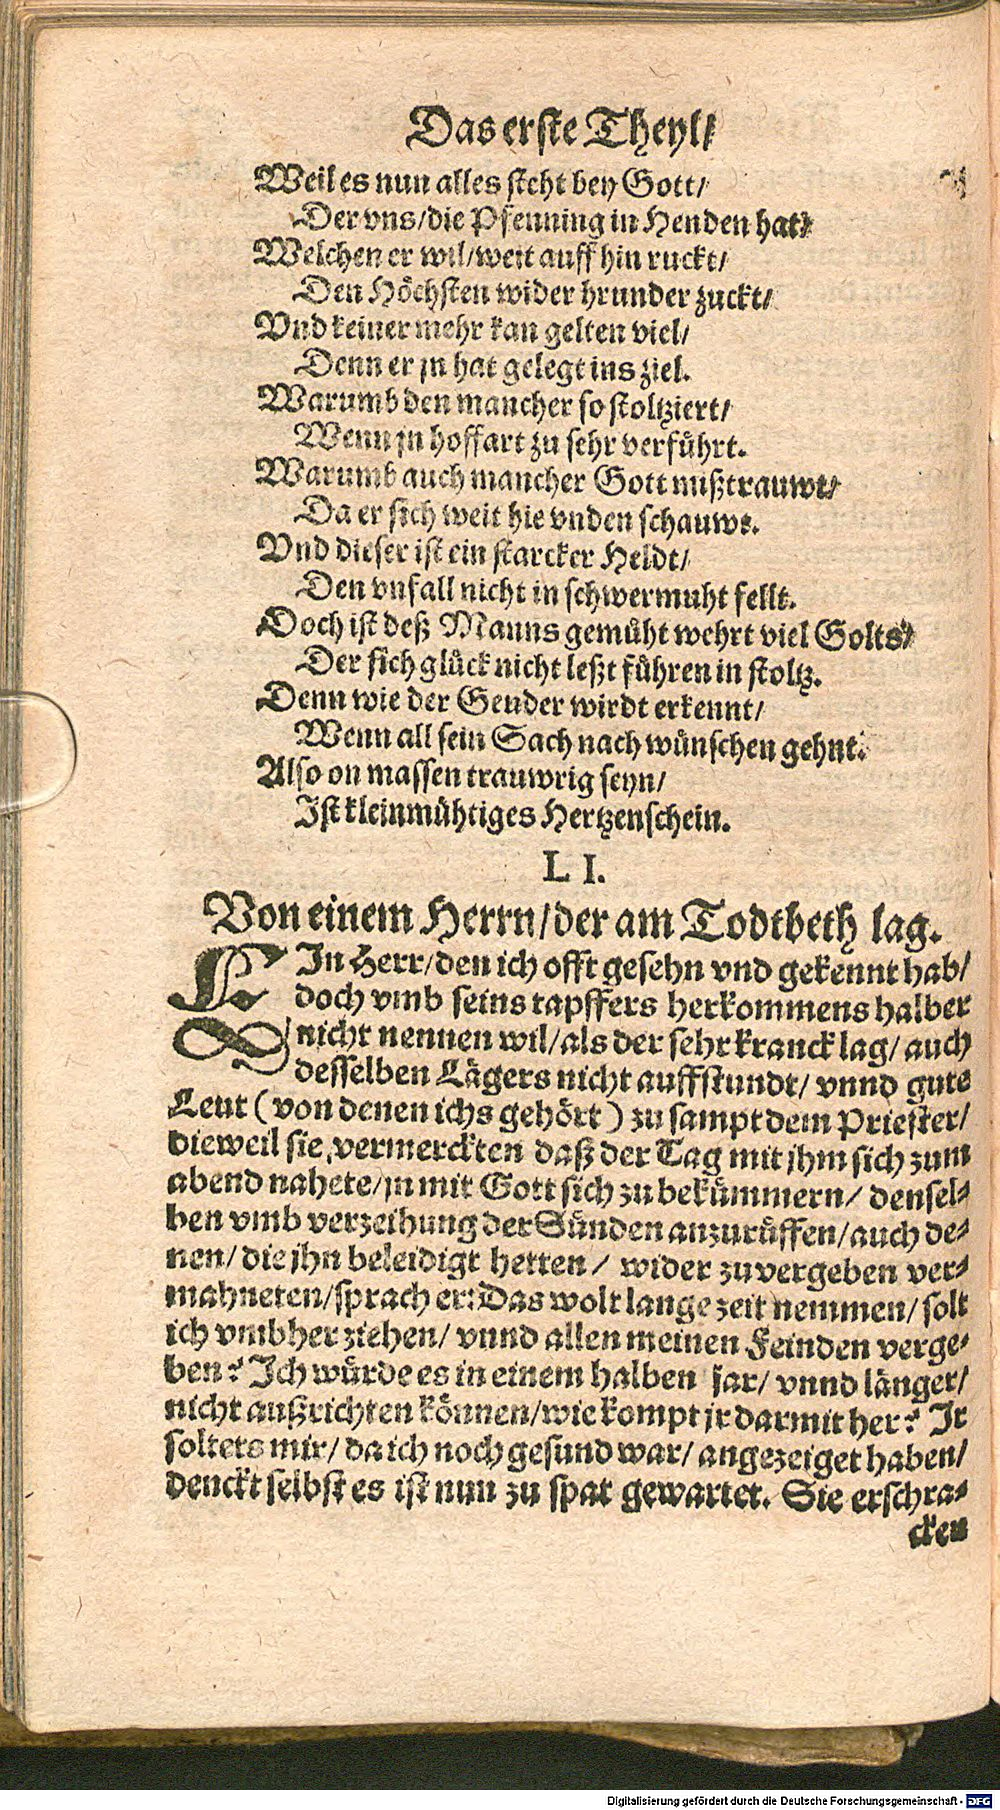 Das erste Theyl/
Weil es nun alles steht bey Gott/
Der vns/die Pfenning in Henden hat/
Welchen er wil/weit auff hin ruckt/
Den Höchsten wider hrunder zuckt/
Vnd keiner mehr kan gelten viel/
Denn er jn hat gelegt ins ziel.
Warumb den mancher so stoltziert/
Wenn jn hoffart zu sehr verführt.
Warumb auch mancher Gott mißtrauwt/
Da er sich weit hie vnden schauwt.
Vnd dieser ist ein starcker Heldt/
Den vnfall nicht in schwermuht fellt.
Doch ist deß Manns gemüht wehrt viel Golts/
Der sich glück nicht leßt führen in stoltz.
Denn wie der Geuder wirdt erkennt/
Wenn all sein Sach nach wünschen gehnt.
Also on massen trauwrig seyn/
Ist kleinmühtiges Hertzenschein.
LI.
Von einem Herrn/der am Todtbeth lag.
EIn Herr/den ich offt gesehn vnd gekennt hab/
doch vmb seins tapffers herkommens halber
nicht nennen wil/als der sehr kranck lag/ auch
desselben Lägers nicht auffstundt/ vnnd gute
Leut (von denen ichs gehört) zu sampt dem Priester/
dieweil sie vermerckten daß der Tag mit jhm sich zum
abend nahete/jn mit Gott sich zu bekümmern/ densel-
ben vmb verzeihung der Sünden anzurüffen/auch de-
nen/ die jhn beleidigt hetten/ wider zuvergeben ver-
mahneten/sprach er: Das wolt lange zeit nemmen/ solt
ich vmbher ziehen/ vnnd allen meinen Feinden verge-
ben? Ich würde es in einem halben jar/ vnnd länger/
nicht außrichten können/wie kompt jr darmit her? Ir
soltets mir/ da ich noch gesund war/ angezeiget haben/
denckt selbst es ist nun zu spat gewartet. Sie erschra-
cken
Digitalisierung gefördert durch die Deutsche Forschungsgemeinschaft - DFG